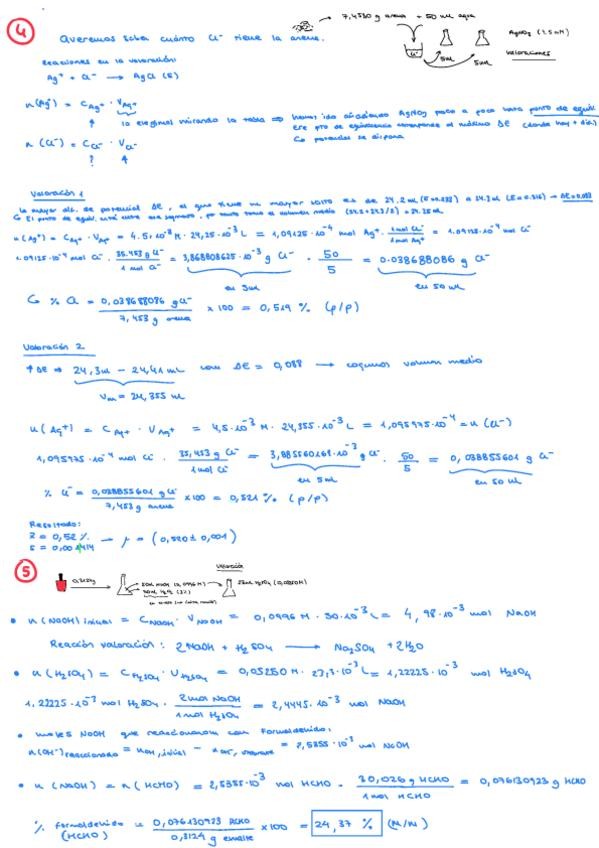 4
7,4530 g arena + 50 mL agua
Queremos saber cuánto Cl⁻ tiene la arena.
AgNO₃
Valoraciones
5mL
5mL
Reacciones en la valoración:
Ag⁺ + Cl⁻ → AgCl (s)
n(Ag⁺) = C Ag⁺ · V Ag⁺
lo elegimos mirando la tabla ⇒ hemos ido añadiendo AgNO₃ poco a poco hasta punto de equiv.
Ese pto de equivalencia corresponde al máximo ΔE (donde hay + dif.)
↳ potencial se dispara
n(Cl⁻) = C Cl⁻ · V Cl⁻
? 
Valoración 1
La mayor dif. de potencial ΔE, el que tiene un mayor salto es de 24,2 mL
↳ El punto de equiv. está entre ese segmento, por tanto tomo el volumen medio (24.2+24.3/2) = 24.25 mL
n(Ag⁺) = C Ag⁺ · V Ag⁺ = 4.5·10⁻³ M · 24,25·10⁻³ L = 1,09125·10⁻⁴ mol Ag⁺ · 1 mol Cl⁻ / 1 mol Ag⁺ = 1.09125·10⁻⁴ mol Cl⁻
1.09125·10⁻⁴ mol Cl⁻ · 35.453 g Cl⁻ / 1 mol Cl⁻ = 3,868808625·10⁻³ g Cl⁻ · 50/5 = 0.038688086 g Cl⁻
en 5mL en 50 mL
↳ % Cl = 0,038688086 g Cl⁻ / 7,453 g arena × 100 = 0,519 % (p/p)
Valoración 2
↑ ΔE ⇒ 24,3mL – 24,41 mL con ΔE = 0,088 → cogemos volumen medio
Vm = 24,355 mL
n(Ag⁺) = C Ag⁺ · V Ag⁺ = 4,5·10⁻³ M · 24,355·10⁻³ L = 1,095975·10⁻⁴ = n(Cl⁻)
1,095975·10⁻⁴ mol Cl⁻ · 35,453 g Cl⁻ / 1 mol Cl⁻ = 3,885560168·10⁻³ g Cl⁻ · 50/5 = 0,038855601 g Cl⁻
en 5mL en 50 mL
% Cl⁻ = 0,038855601 g Cl⁻ / 7,453 g arena × 100 = 0,521 % (p/p)
Resultado:
x̄ = 0,52 %
→ μ = (0,520 ± 0,001)
s = 0,001414
5
Valoración
0,3124g
50mL NaOH (0,0996M)
50mL H₂O₂ (3%)
H₂SO₄ (0,0525M)
• n(NaOH) inicial = C NaOH · V NaOH = 0,0996 M · 50·10⁻³ L = 4,98·10⁻³ mol NaOH
Reacción valoración: 2NaOH + H₂SO₄ → Na₂SO₄ + 2H₂O
• n(H₂SO₄) = C H₂SO₄ · V H₂SO₄ = 0,05250 M · 23,3·10⁻³ L = 1,22225·10⁻³ mol H₂SO₄
1.22225·10⁻³ mol H₂SO₄ · 2 mol NaOH / 1 mol H₂SO₄ = 2,4445·10⁻³ mol NaOH
• moles NaOH que reaccionaron con formaldehído:
n(OH⁻) reaccionado = n OH, inicial – n = 2,5355·10⁻³ mol NaOH
• n(NaOH) = n(HCHO) = 2,5355·10⁻³ mol HCHO · 30,026 g HCHO / 1 mol HCHO = 0,076130923 g HCHO
% formaldehído (HCHO) = 0,076130923 HCHO / 0,3124 g esmalte × 100 = 24,37 % (m/m)